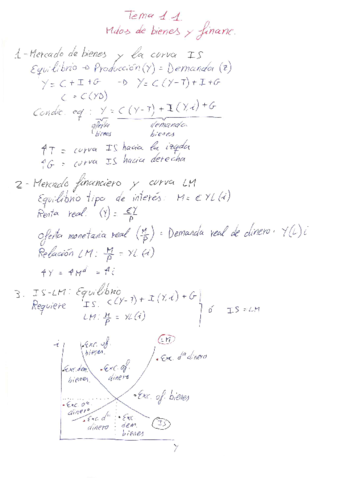 Tema 11
Mdos de bienes y financ.
1- Mercado de bienes y la curva IS
Equilibrio → Producción (Y) = Demanda (Z)
Y = C + I + G → Y = C(Y-T) + I + G
C = C(YD)
Condic. eq: Y = C(Y-T) + I(Y,i) + G
oferta bienes
demanda bienes
↑T = curva IS hacia la izqda
↑G = curva IS hacia derecha
2- Mercado financiero y curva LM
Equilibrio tipo de interés M = €YL(i)
Renta real (Y) = €Y/P
Oferta monetaria real (M/P) = Demanda real de dinero - Y(L)i
Relación LM: M/P = YL(i)
↑Y = ↑Mᵈ = ↑i
3. IS-LM: Equilibrio
Requiere IS: C(Y-T) + I(Y,i) + G
LM: M/P = YL(i)
ó IS=LM
i
Exc. of. bienes
LM
Exc dª dinero
Exc dem. bienes
Exc. of. dinero
Exc. of bienes
Exc. dª dinero
Exc. dª dinero
Exc dem. bienes
IS
Y